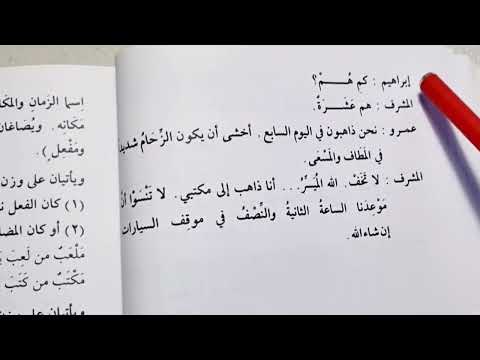 إبراهيم : كم هُــمْ؟
المشرف : هم عَشَرَةٌ.
عمـرو : نحن ذاهبون في اليوم السابع. أخشى أن يكون الزِّحَامُ شديدا
في المَطَاف والمَسْعَى.
المشرف : لا تَخَفْ. الله المُيَسِّرُ... أنا ذاهب إلى مكتبي. لا تَنْسَوْا أنَّ
مَوْعِدَنا الساعةُ الثانيةُ والنِّصْفُ في موقِف السيارات
إن شاء الله.
اِسْما الزمانِ والمَكا
مَكانِه. ويُصَاغان
ومَفْعِل).
ويأتيان على وزن
(١) كان الفعل نـ
(٢) أو كان المضا
مَلْعَبٌ من لَعِبَ يَـ
مَكْتَبٌ من كَتَبَ
ويأتيان على وزن